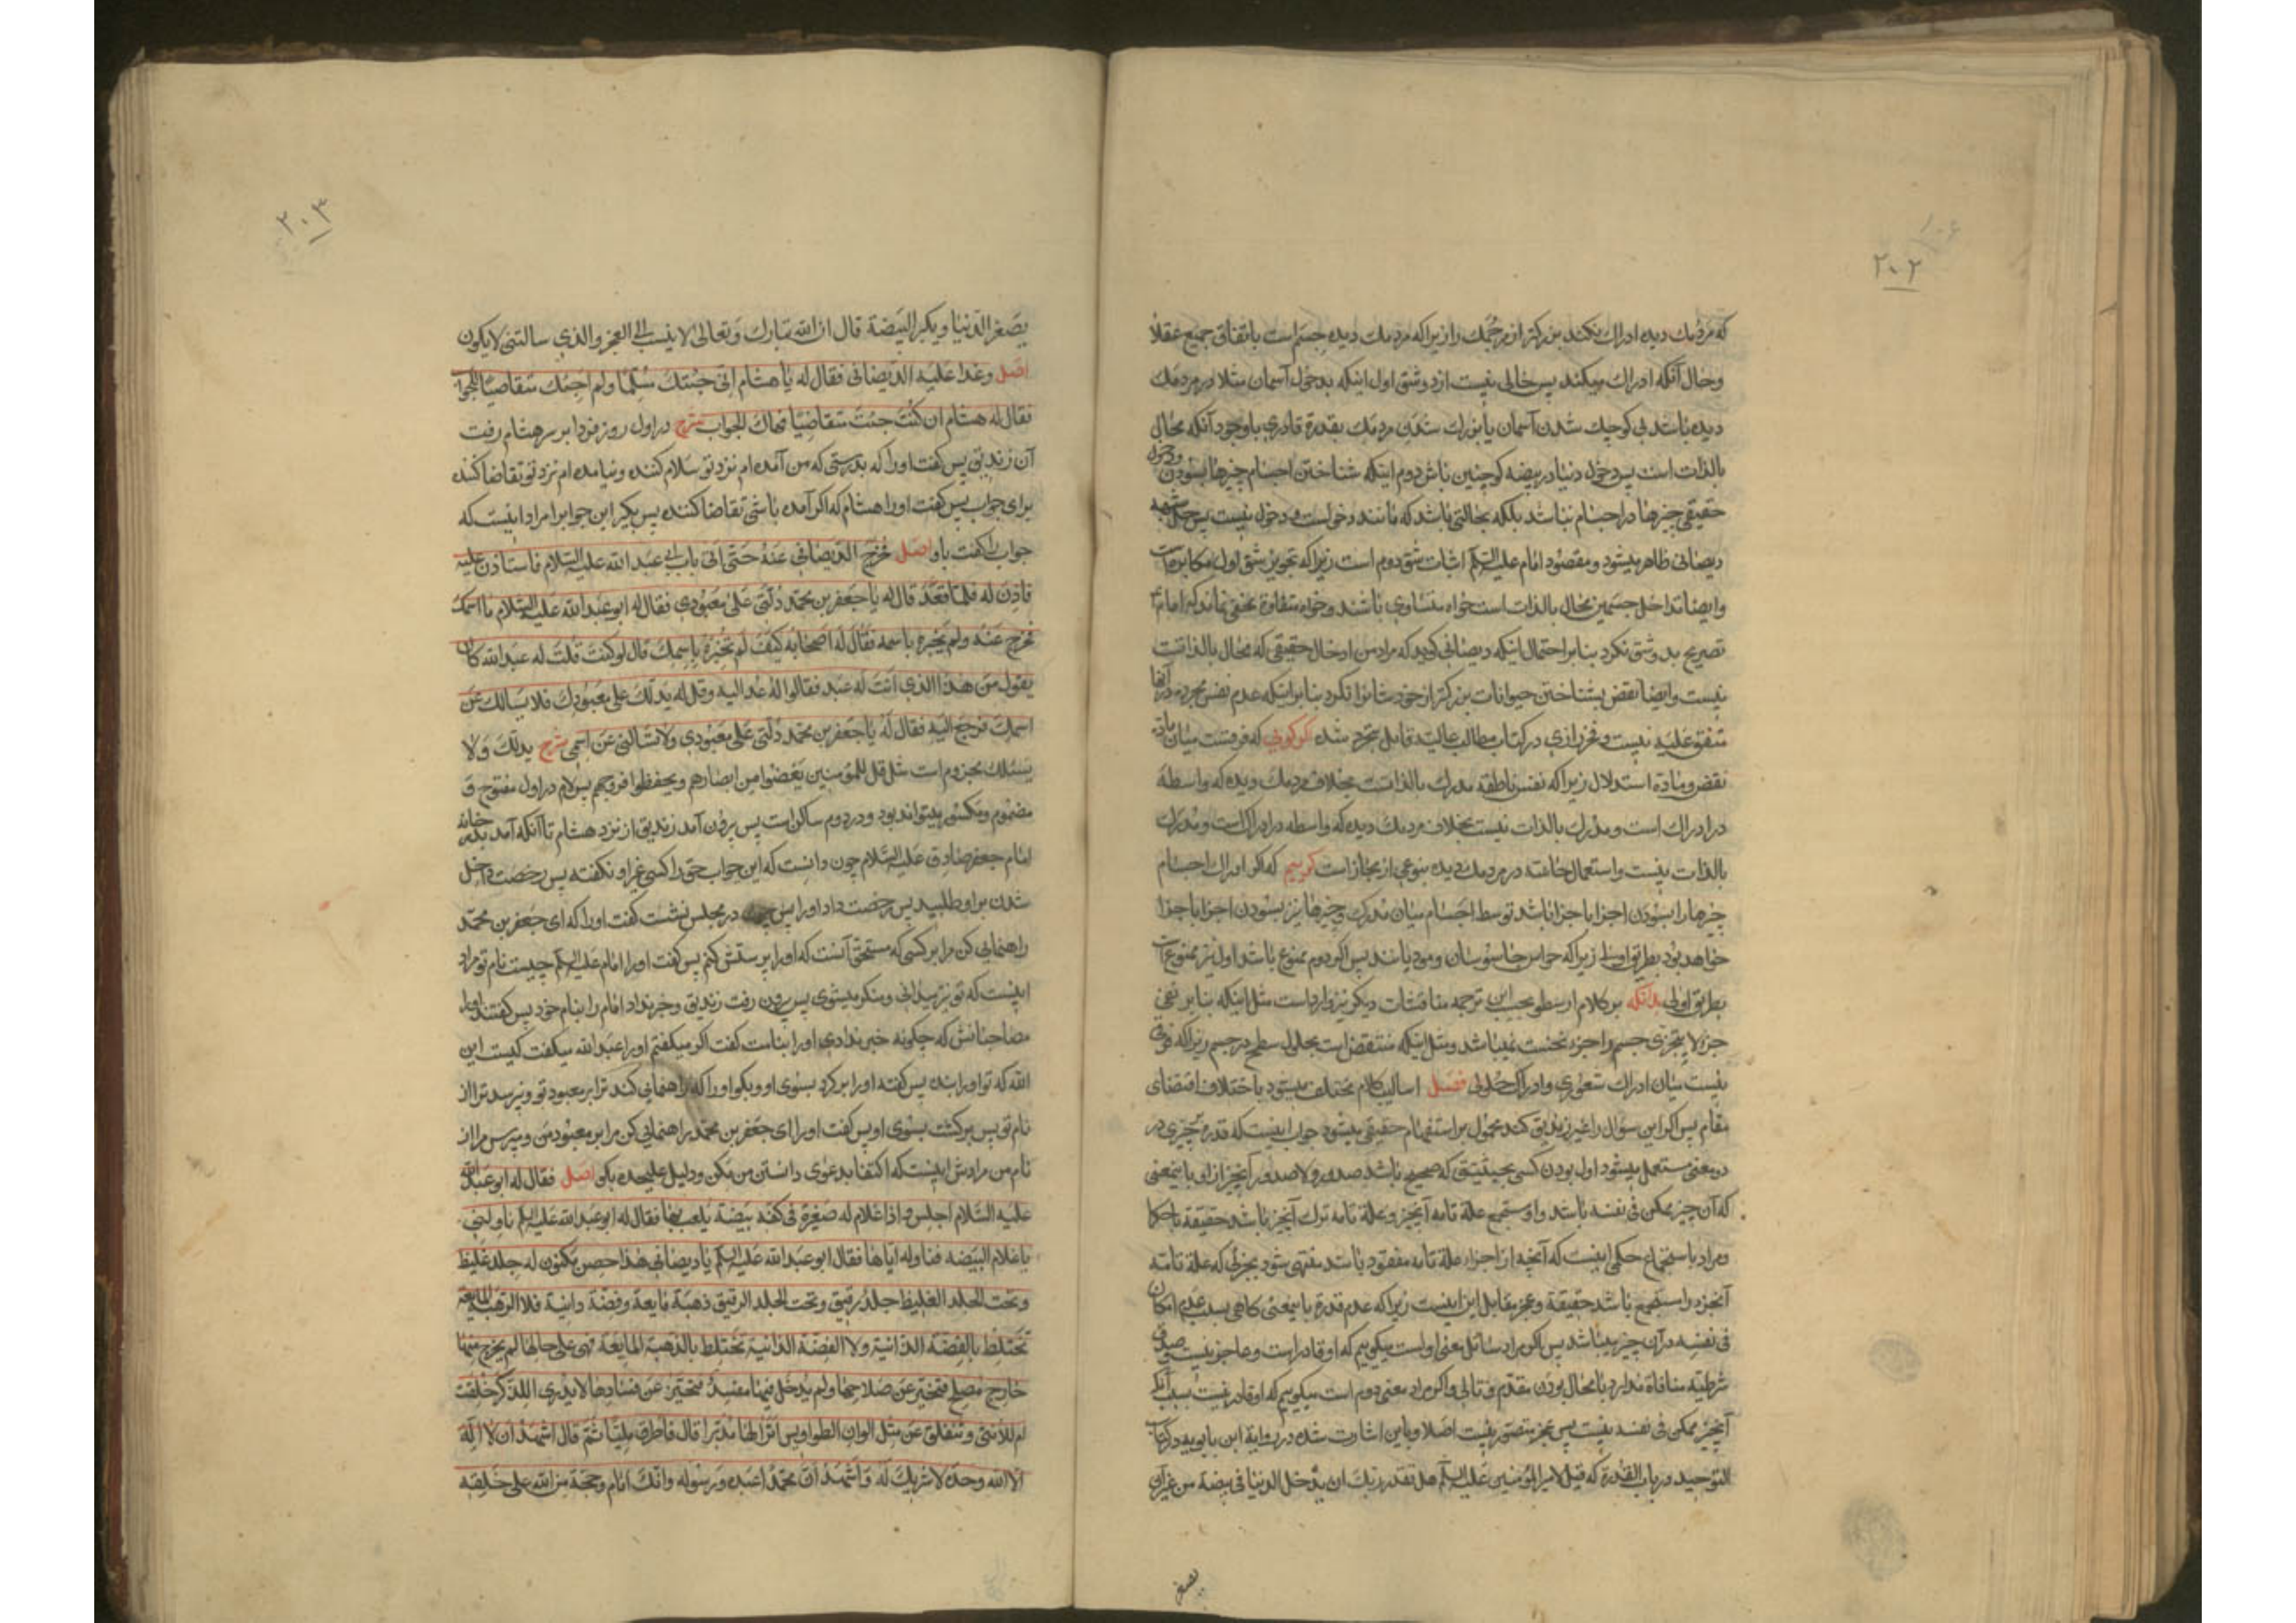 ۲۰۲
که مردمك دیده ادراك نکند بزرکتر از مرجمك را زیرا که مردمك دیده جسم است باتفاق جمیع عقلا
وحال آنکه ادراك میکند پس خالی نیست از دو شق اول اینکه بدخول آسمان مثلا در مردمك
دیده باشد بی کوچیك شدن آسمان یا بزرك شدن مردمك بقدرة قادری باوجود آنکه محال
بالذات است پس دخول دنیا در بیضه کو چنین باش دوم اینکه شناختن اجسام چیزها را بسودن و دخول
حقیقی چیزها در اجسام نباشد بلکه بحالتی باشد که مانند دخولست و دخول نیست پس حل شبهه
دیصانی ظاهر میشود و مقصود امام علیه السلم اثبات شق دوم است زیرا که تجویز شق اول مکابره است
وایضا تداخل جسمین محال بالذات است خواه متساوی باشند و خواه متفاوة مخفی نماند که امام ع
تصریح بدو شق نکرد بنابر احتمال اینکه دیصانی کوید که مراد من ادخال حقیقی که محال بالذاتست
نیست وایضا نقض بشناختن حیوانات بزرکتر از خود شانرا نکرد بنابر اینکه عدم نفس مجرده در آنها
متفق علیه نیست و فخر رازی در کتاب مطالب عالیه قایل بتجرد شده کر کوئی که فرقست میان ماده
نقض و مادة استدلال زیرا که نفس ناطقه مدرك بالذاتست بخلاف مردمك دیده که واسطه
در ادراك است و مدرك بالذات نیست بخلاف مردمك دیده که واسطه در ادراك است و مدرك
بالذات نیست و استعمال حاسه در مردمك دیده بنوعی از مجاز است کوییم که اکر ادراك اجسام
چیزها را بسودن اجزا باجزا باشد توسط اجسام میان مدرك و چیزها نیز بسودن اجزا باجزا
خواهد بود بطریق اولی زیرا که حواس جاسوسان و مودیانند پس اکر دوم ممنوع باشد اول نیز ممنوع است
بطریق اولی بدانکه بر کلام ارسطو بحسب این ترجمه مناقشات دیکر نیز وارداست مثل اینکه بنابر نفی
جزء لا یتجزی جسم را جزء نخست نمیباشد و مثل اینکه منتقض است بحلول سطح در جسم زیرا که فرقی
نیست میان ادراك شعوری و ادراك حلولی فصل اسالیب کلام مختلف میشود باختلاف اقتضای
مقام پس اکر این سؤال را غیر زندیق کند محمول بر استفهام حقیقی میشود جواب اینست که قدرة بچیزی در
دو معنی مستعمل میشود اول بودن کسی بحیثیتی که صحیح باشد صدور ولا صدور آنچیز از او باینمعنی
که آن چیز ممکن فی نفسه باشد و او مستجمع علة تامه آنچیز و علة تامه ترك آنچیز باشد حقیقة یا حکما
ومراد باستجماع حکمی اینست که آنچه از اجزاء علة تامه مفقود باشد منتهی شود بجزئی که علة تامه
آنجزء را مستجمع باشد حقیقة و عجز مقابل این اینست زیرا که عدم قدرة باینمعنی کاهی بسبب عدم امکان
فی نفسه در آن چیز میباشد پس اکر مراد سائل معنی اولست میکوییم که او قادر است و عاجز نیست و صدق
شرطیه منافاة ندارد با محال بودن مقدم و تالی و اکر مراد معنی دوم است میکوییم که او قادر نیست بسبب آنکه
آنچیز ممکن فی نفسه نیست پس عجز متصور نیست اصلا و باین اشارت شده در روایة ابن بابویه در کتاب
التوحید در باب القدرة که قیل لامیر المؤمنین علیه السلم هل تقدر ربك ان یدخل الدنیا فی بیضة من غیر ان
یصغر
۲۰۳
یصغر الدنیا ویکبر البیضة قال ان الله تبارك وتعالی لا ینسب الی العجز والذی سالتنی لا یکون
اصل وغدا علیه الدیصانی فقال له یا هشام انی جئتك مسلما ولم اجئك متقاضیا للجواب
فقال له هشام ان کنت جئت متقاضیا فهاك الجواب شرح در اول روز فردا بر سر هشام رفت
آن زندیق پس کفت اورا که بدرستی که من آمده ام نزد تو سلام کننده و نیامده ام نزد تو تقاضا کننده
برای جواب پس کفت اورا هشام که اکر آمده باشی تقاضا کننده پس بکیر این جواب را مراد اینست که
جواب را کفت باو اصل فخرج الدیصانی عنه حتی اتی باب ابی عبد الله علیه السلام فاستاذن علیه
فاذن له فلما قعد قال له یا جعفر بن محمد دلنی علی معبودی فقال له ابو عبد الله علیه السلام ما اسمك
فخرج عنه ولم یخبره باسمه فقال له اصحابه کیف لم تخبره باسمك قال لو کنت قلت له عبد الله کان
یقول من هذا الذی انت له عبد فقالوا له عد الیه وقل له یدلك علی معبودك فلا یسالك عن
اسمك فرجع الیه فقال له یا جعفر بن محمد دلنی علی معبودی ولا تسالنی عن اسمی شرح یدلك ولا
یسئلك مجزوم است مثل قل للمؤمنین یغضوا من ابصارهم ویحفظوا فروجهم پس لام در اول مفتوح و
مضموم و مکسور میتواند بود و در دوم ساکن است پس برون آمد زندیق از نزد هشام تا آنکه آمد بدر خانه
امام جعفر صادق علیه السلام چون دانست که این جواب حق را کسی غیر او نکفته پس رخصت دخل
شدن بر او طلبید پس رخصت داد اورا پس چون در مجلس نشست کفت اورا که ای جعفر بن محمد
راهنمایی کن مرا بر کسی که مستحق آنست که اورا پرستش کنم پس کفت اورا امام علیه السلم چیست نام تو مراد
اینست که تو نیز میدانی و منکر میشوی پس برون رفت زندیق و خبر نداد امام را بنام خود پس کفتند اورا
مصاحبانش که چکونه خبر ندادی اورا بنامت کفت اکر میکفتم اورا عبد الله میکفت کیست این
الله که تو اورا بنده پس کفتند اورا بر کرد بسوی او وبکو اورا که راهنمایی کند ترا بر معبود تو و نپرسد ترا از
نام تو پس برکشت بسوی او پس کفت اورا ای جعفر بن محمد راهنمایی کن مرا بر معبود من و مپرس مرا از
نام من مرادش اینست که اکتفا بدعوی دانستن من مکن و دلیل علیحده بکو اصل فقال له ابو عبد الله
علیه السلام اجلس واذا غلام له صغیر فی کفه بیضة یلعب بها فقال له ابو عبد الله علیه السلم ناولنی
یا غلام البیضه فناوله ایاها فقال ابو عبد الله علیه السلم یا دیصانی هذا حصن مکنون له جلد غلیظ
وتحت الجلد الغلیظ جلد رقیق وتحت الجلد الرقیق ذهبة مایعة وفضة ذائبة فلا الذهبة المایعة
تختلط بالفضة الذائبة ولا الفضة الذائبة تختلط بالذهبة المایعة فهی علی حالها لم یخرج منها
خارج مصلح فیخبر عن صلاحها ولم یدخل فیها مفسد فیخبر عن فسادها لا یدری اللذکر خلقت
ام للانثی وتنفلق عن مثل الوان الطواویس اتری لها مدبرا قال فاطرق ملیا ثم قال اشهد ان لا اله
الا الله وحده لا شریك له واشهد ان محمدا عبده ورسوله وانك امام وحجة من الله علی خلقه